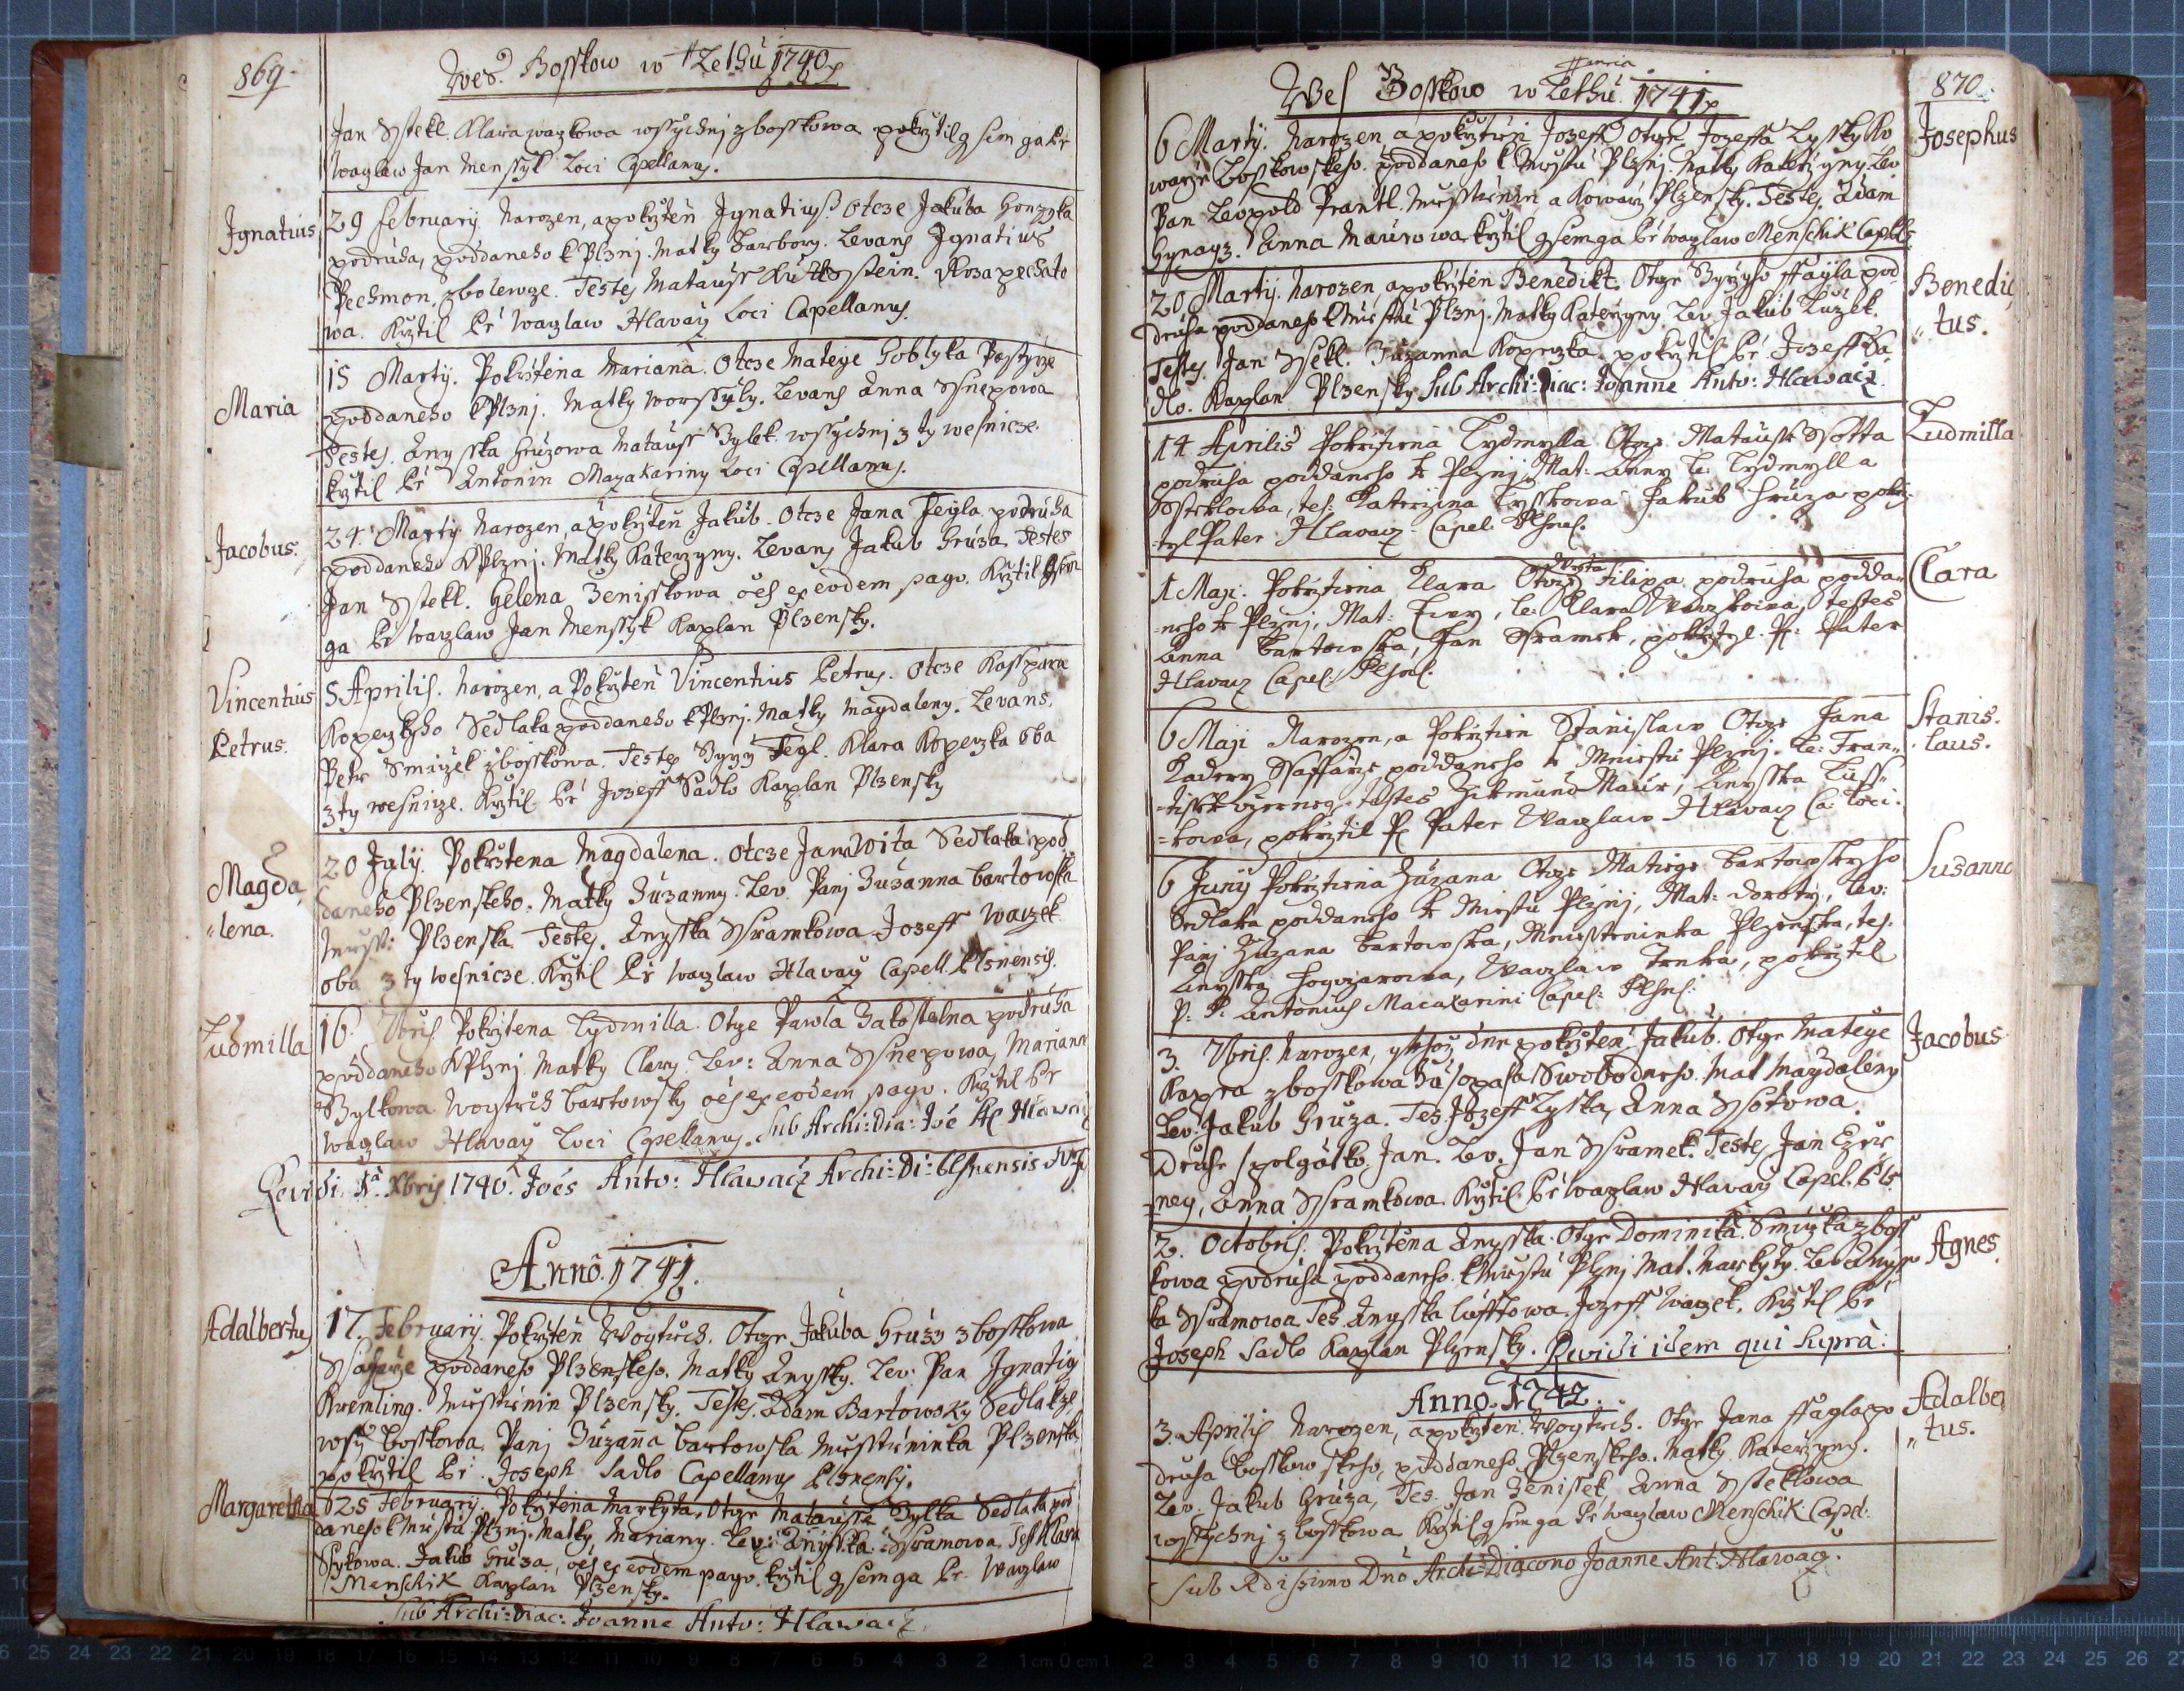 869.
Wes Bosskow w Lethu 1740
Jan Sstekl. Klara waczkowa wssychnj z bosskowa pokrztil gsem ga kr
Waczlaw Jan Menssyk Loci Capellanus.
Ignatius
29 February Narozen, a pokrzten Ignatius. Otcze Jakuba Honzyka
podruha, poddaneho k Plznj. Matky Barbory. Levans Ignatius
Pechmon, z bolewcze. Testes Matauss . Roza pechato
wa. Krztil Pr Waczlaw Hlavay Loci Capellanus.
Maria
15 Martij. Pokrztena Mariana. Otcze Matege Goblyka Pastyrze
poddaneho k Plznj. Matky Worssyly. Levans Anna Ssnepowa
Testes. Anysska Gruzowa Matauss Bylek. wssychnj z ty wesnicze.
krztil Pr Antonin Mazakariny Loci Capellanus.
Jacobus.
24. Martij Narozen a pokrzten Jakub. Otcze Jana Fegla podruha
poddaneho K Plznj. Matky Katerzyny. Levans Jakub Gruza. Testes
Jan Sstekl. Helena Zenisskowa oes ex eodem pago. Krztil gsem
ga Pr Waczlaw Jan Menssyk Kaplan Plzensky.
Vincentius
Petrus.
5 Aprilis. Narozen, a Pokrzten Vincentius Petrus. Otcze Kasspara
Koperzkyho Sedlaka poddaneho k Plznj. Matky Magdaleny. Levans.
Petr Smaizek z bosskowa. Testes Gyrzy Fegl. Klara Koperzka oba
z ty wesnicze. Krztil Pr Jozeff Sadlo Kaplan Plzensky
Magda,
"lena.
20 July. Pokrztena Magdalena. Otcze Jana Wita Sedlaka pod
daneho Plzenskeho. Matky Zuzanny. Lev. Panj Zuzanna bartowska
Messt: Plzenska. Testes. Anysska Ssramkowa Jozeff Waczek.
oba z ty wesnicze. Krztil Pr Waczlaw Hlavay Capell. Plsnensis.
Ludmilla
16. 7bris Pokrztena Lydmilla. Otcze Pawla Zakostelna podruha
poddaneho K Plznj. Matky Clary. Lev: Anna Ssnepowa, Mariana
Bylkowa Woytiech bartowsky oes ex eodem pago. Krztil Pr
Waczlaw Hlavay Loci Capellanus. Sub Archi: Dia: Joe Ant. Hlavacz
Revidi 1a Xbris 1740. Joes Anto: Hlavacz Archi: Di: Plsnensis
Anno. 1741.
Adalbertus
17. February. Pokrzten Woytiech. Otcze Jakuba Gruzy z bosskowa
Ssafarze poddaneho Plzenskeho. Matky Anyssky. Lev: Pan Ignatig
Kremling. Messtienin Plzensky. Testes. Adam Bartowsky Sedlak ze
wsy bosskowa. Panj Zuzanna bartowska Messtieninka Plzenska
pokrztil Pr. Joseph Sadlo Capellanus Plsnensis.
Margaretha
25 February. Pokrztena Markyta. Otcze Matausse Bylka Sedlaka pod
daneho k Miestu Plznj. Matky Mariany. Lev: Anysska Ssramowa. Test Klara
Jakub Gruza, oes ex eodem pago. krztil gsem ga Pr. Waczlaw
Menschik Kaplan Plzensky.
Sub Archi: Diac: Joanne Anto: Hlawacz.
870.
Wes Bosskow w Lethu. 1741
Josephus
6 Martij. Narozen, a pokrztien Jozeff Otcze Jozeffa Lyssky Ko
warze bosskowskeho. poddaneho k Miestu Plznj. Matky Katerzyny. Lev
Pan Leopold Prantl. Messtienin a Kowarz Plzensky. Testes, Adam
Hynays. Anna Maurowa krztil gsem ga Pr Waczlaw Menschik Capells
Benedic
" tus.
20 Martij. Narozen, a pokrzten Benedikt. Otcze Gyrzyho ffayla pod
druha poddaneho k Miestu Plznj. Matky Katerzyny. Lev. Jakub Luzek.
Testes. Jan Ssekl. Zuzanna Koprczka. pokrztil Pr. Jozeff Sa
dlo. Kaplan Plzensky Sub Archi: Diac: Joanne Anto: Hlawacz.
Ludmilla
14 Aprilis Pokrztiena Lydmylla Otcze Matausse Ssotta
podruha poddaneho k Plznj, Mat: Anny Le: Lydmylla
Ssteklowa, tes: Katerzina Lysskowa Jakub Hruza pokrz
tyl Pater Hlavacz Capel: Plsnes.
Clara
1 Maji. Pokrztiena Klara Otcze Filipa podruha podda=
=neho k Plznj, Mat: Ewy, Le: Klara Waczkowa, testes
Anna Bartowska, Jan Ssramek, pokrztyl. P: Pater
Hlavacz Capel: Plsnes.
Stanis.
laus.
6 Maji Narozen, a Pokrztien Stanislaw Otcze Jana
Kadery Ssaffarze, poddaneho k Mniestu Plznj. Le: Fran=
=tissek testes Zikmund Maur, Anysska Luff=
=kowa, pokrztil P Pater Waczlaw Hlavacz Ca: Loci.
Susanna
6 Junij Pokrztiena Zuzana Otcze Mategе Bartowskyho
Sedlaka poddaneho k Miestu Plznj, Mat: doroty, Lev:
Panj Zuzana Bartowska, Mniestieninka Plzenska, tes.
Anysska , Waczlaw Trnka, pokrztil
P: P: Antonius Macaxarini Capel: Plsnes.
Jacobus
3. 7bris. Narozen, dne pokrzten Jakub. Otcze Mategе
Kapra z bosskowa Swobodneho. Mat Magdaleny
Lev: Jakub Gruza. Tes. Jozeff Lysska, Anna Ssotowa.
Druhe Jan. Lev. Jan Ssramek. Testes Jan
ney, Anna Ssramkowa. Krztil Pr Waczlaw Hlavay Capel. Pls
Agnes.
2. Octobris. Pokrztena Anysska. Otcze Dominika Smiczka z boss
kowa podruha poddaneho k Miestu Plznj Mat. Markyty. Lev. Anyss
ka Ssramowa Tes Anysska lufftowa. Jozeff Waczek. Krztil Pr
Joseph Sadlo Kaplan Plzensky. Revidi idem qui supra:
Anno. 1742.
Adalber
" tus.
3. Aprilis Narozen, a pokrzten Woytiech. Otcze Jana ffagla po
druha bosskowskeho, poddaneho Plzenskeho. Matky Katerzyny.
Lev. Jakub Gruza, Tes. Jan Zenissek, Anna Ssteklowa
wssychnj z bosskowa Krztil gsem ga Pr Waczlaw Menschik Capel.
Sub Rdissimo Dno Archi-Diacono Joanne Ant. Hlawacz.